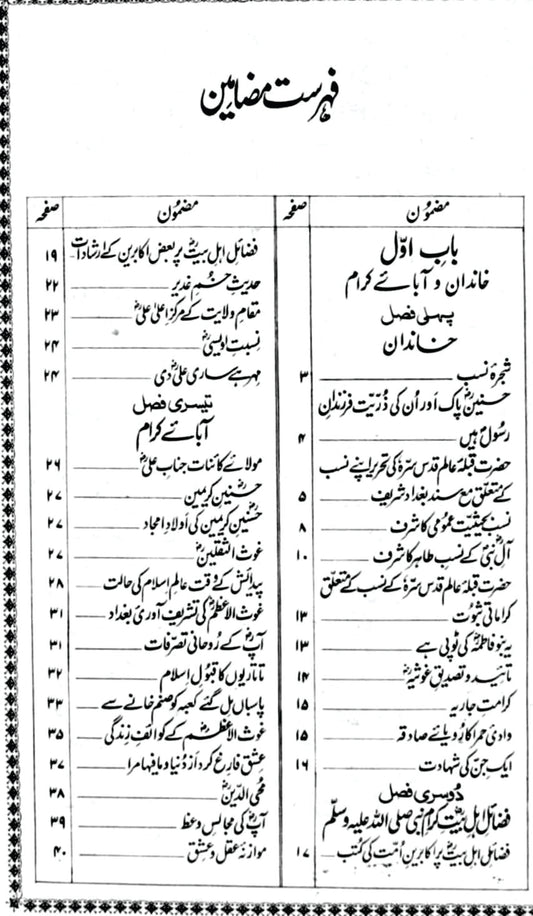 فہرست مضامین
مضمون صفحہ
باب اوّل
خاندان و آبائے کرام
پہلی فصل
خاندان
شجرۂ نسب ۳
حسنین پاک اور اُن کی ذُرّیت فرزندانِ
رسول ہیں ۴
حضرت قبلۂ عالم قدس سرّہٗ کی تحریر اپنے نسب
کے متعلق مع سند بغداد شریف ۵
نسب بحیثیت عمومی کا شرف ۸
آلِ نبیؐ کے نسب طاہر کا شرف ۱۰
حضرت قبلۂ عالم قدس سرّہٗ کے نسب کے متعلق
کراماتی ثبوت ۱۳
یہ بنو فاطمہؓ کی ٹوپی ہے ۱۳
تائید و تصدیق غوثیہؓ ۱۴
کرامت جاریہ ۱۵
وادیٔ حمرا کا رُویائے صادقہ ۱۵
ایک جِنّ کی شہادت ۱۶
دُوسری فصل
فضائل اہلِ بیت کرام نبی صلی اللہ علیہ وسلّم
فضائل اہل بیتؓ پر اکابرین اُمّت کی کتب ۱۷
مضمون صفحہ
فضائل اہل بیتؓ پر بعض اکابرین کے ارشادات ۱۹
حدیثِ خُمِ غدیر ۲۲
مقامِ ولایت کے مرکزِ اعلیٰ علیؓ ۲۳
نسبت اویسیؓ ۲۴
مہر ہے ساری علیؓ دی ۲۴
تیسری فصل
آبائے کرام
مولائے کائنات جناب علیؓ ۲۶
حسنین کریمین ۲۷
حسنین کریمین کی اولادِ امجاد ۲۷
غوث الثقلینؓ ۲۷
پیدائش کے وقت عالمِ اسلام کی حالت ۲۸
غوث الاعظمؓ کی تشریف آوری بغداد ۳۱
آپؓ کے رُوحانی تصرّفات ۳۱
تاتاریوں کا قبولِ اسلام ۳۲
پاسباں مل گئے کعبہ کو صنم خانے سے ۳۳
غوث الاعظمؓ کے کوائفِ زندگی ۳۵
عشق فارغ کرد از دُنیا و ما فیہا مرا ۳۷
محی الدّینؓ ۳۸
آپؓ کی مجالسِ وعظ ۳۹
موازنۂ عقل و عشق ۴۰